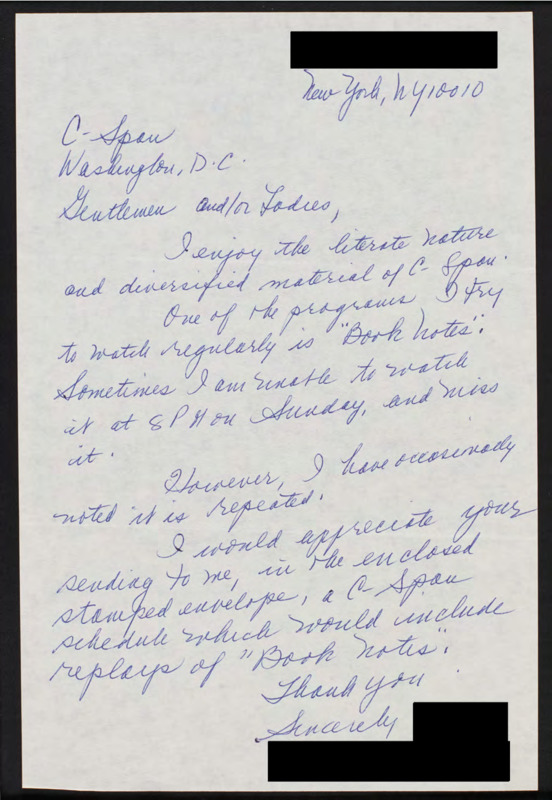 New York, NY 10010
C-Span
Washington, D.C.
Gentlemen and/or Ladies,
I enjoy the literate nature
and diversified material of C-Span.
One of the programs I try
to watch regularly is "Book Notes".
Sometimes I am unable to watch
it at 8 PM on Sunday, and miss
it.
However, I have occasionally
noted it is repeated.
I would appreciate your
sending to me, in the enclosed
stamped envelope, a C-Span
schedule which would include
replays of "Book Notes".
Thank you
Sincerely